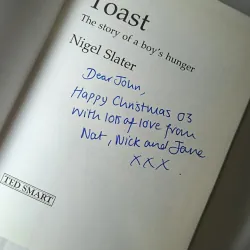 Toast
The story of a boy's hunger
Nigel Slater
Dear John,
Happy Christmas 03
with lots of love from
Nat, Nick and Jane
xxx
TED SMART